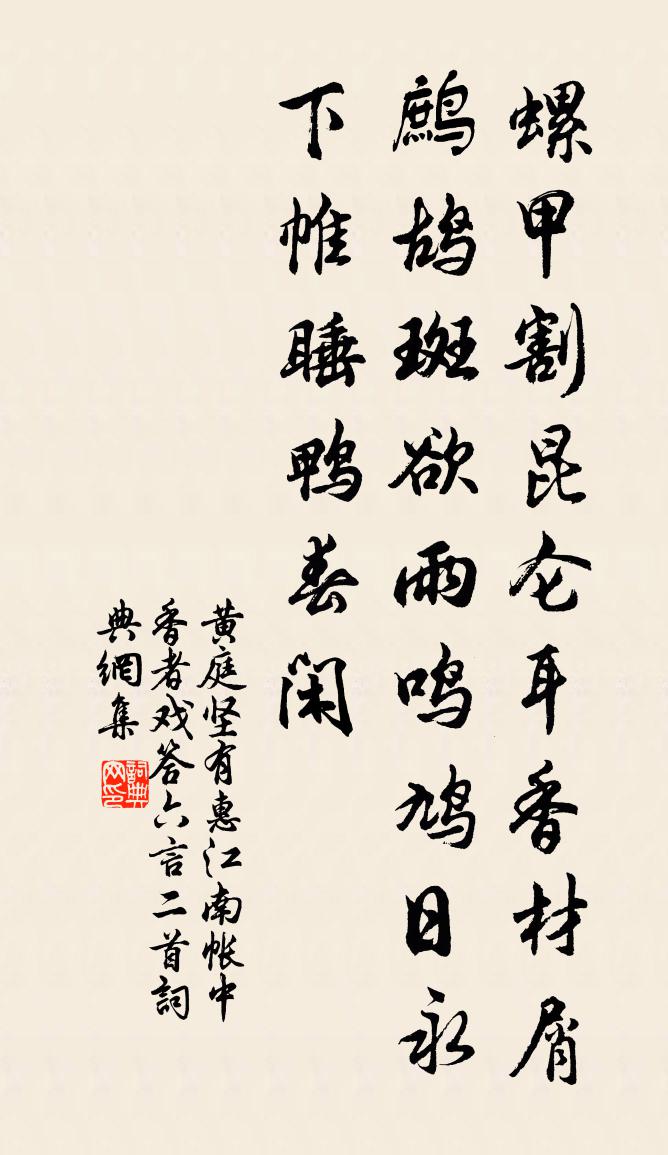 螺甲割昆仑耳香材屑
鹧鸪斑欲雨鸣鸠日永
下帷睡鸭春闲
黄庭坚有惠江南帐中
香者戏答六言二首詞
典網集
詞典
网印